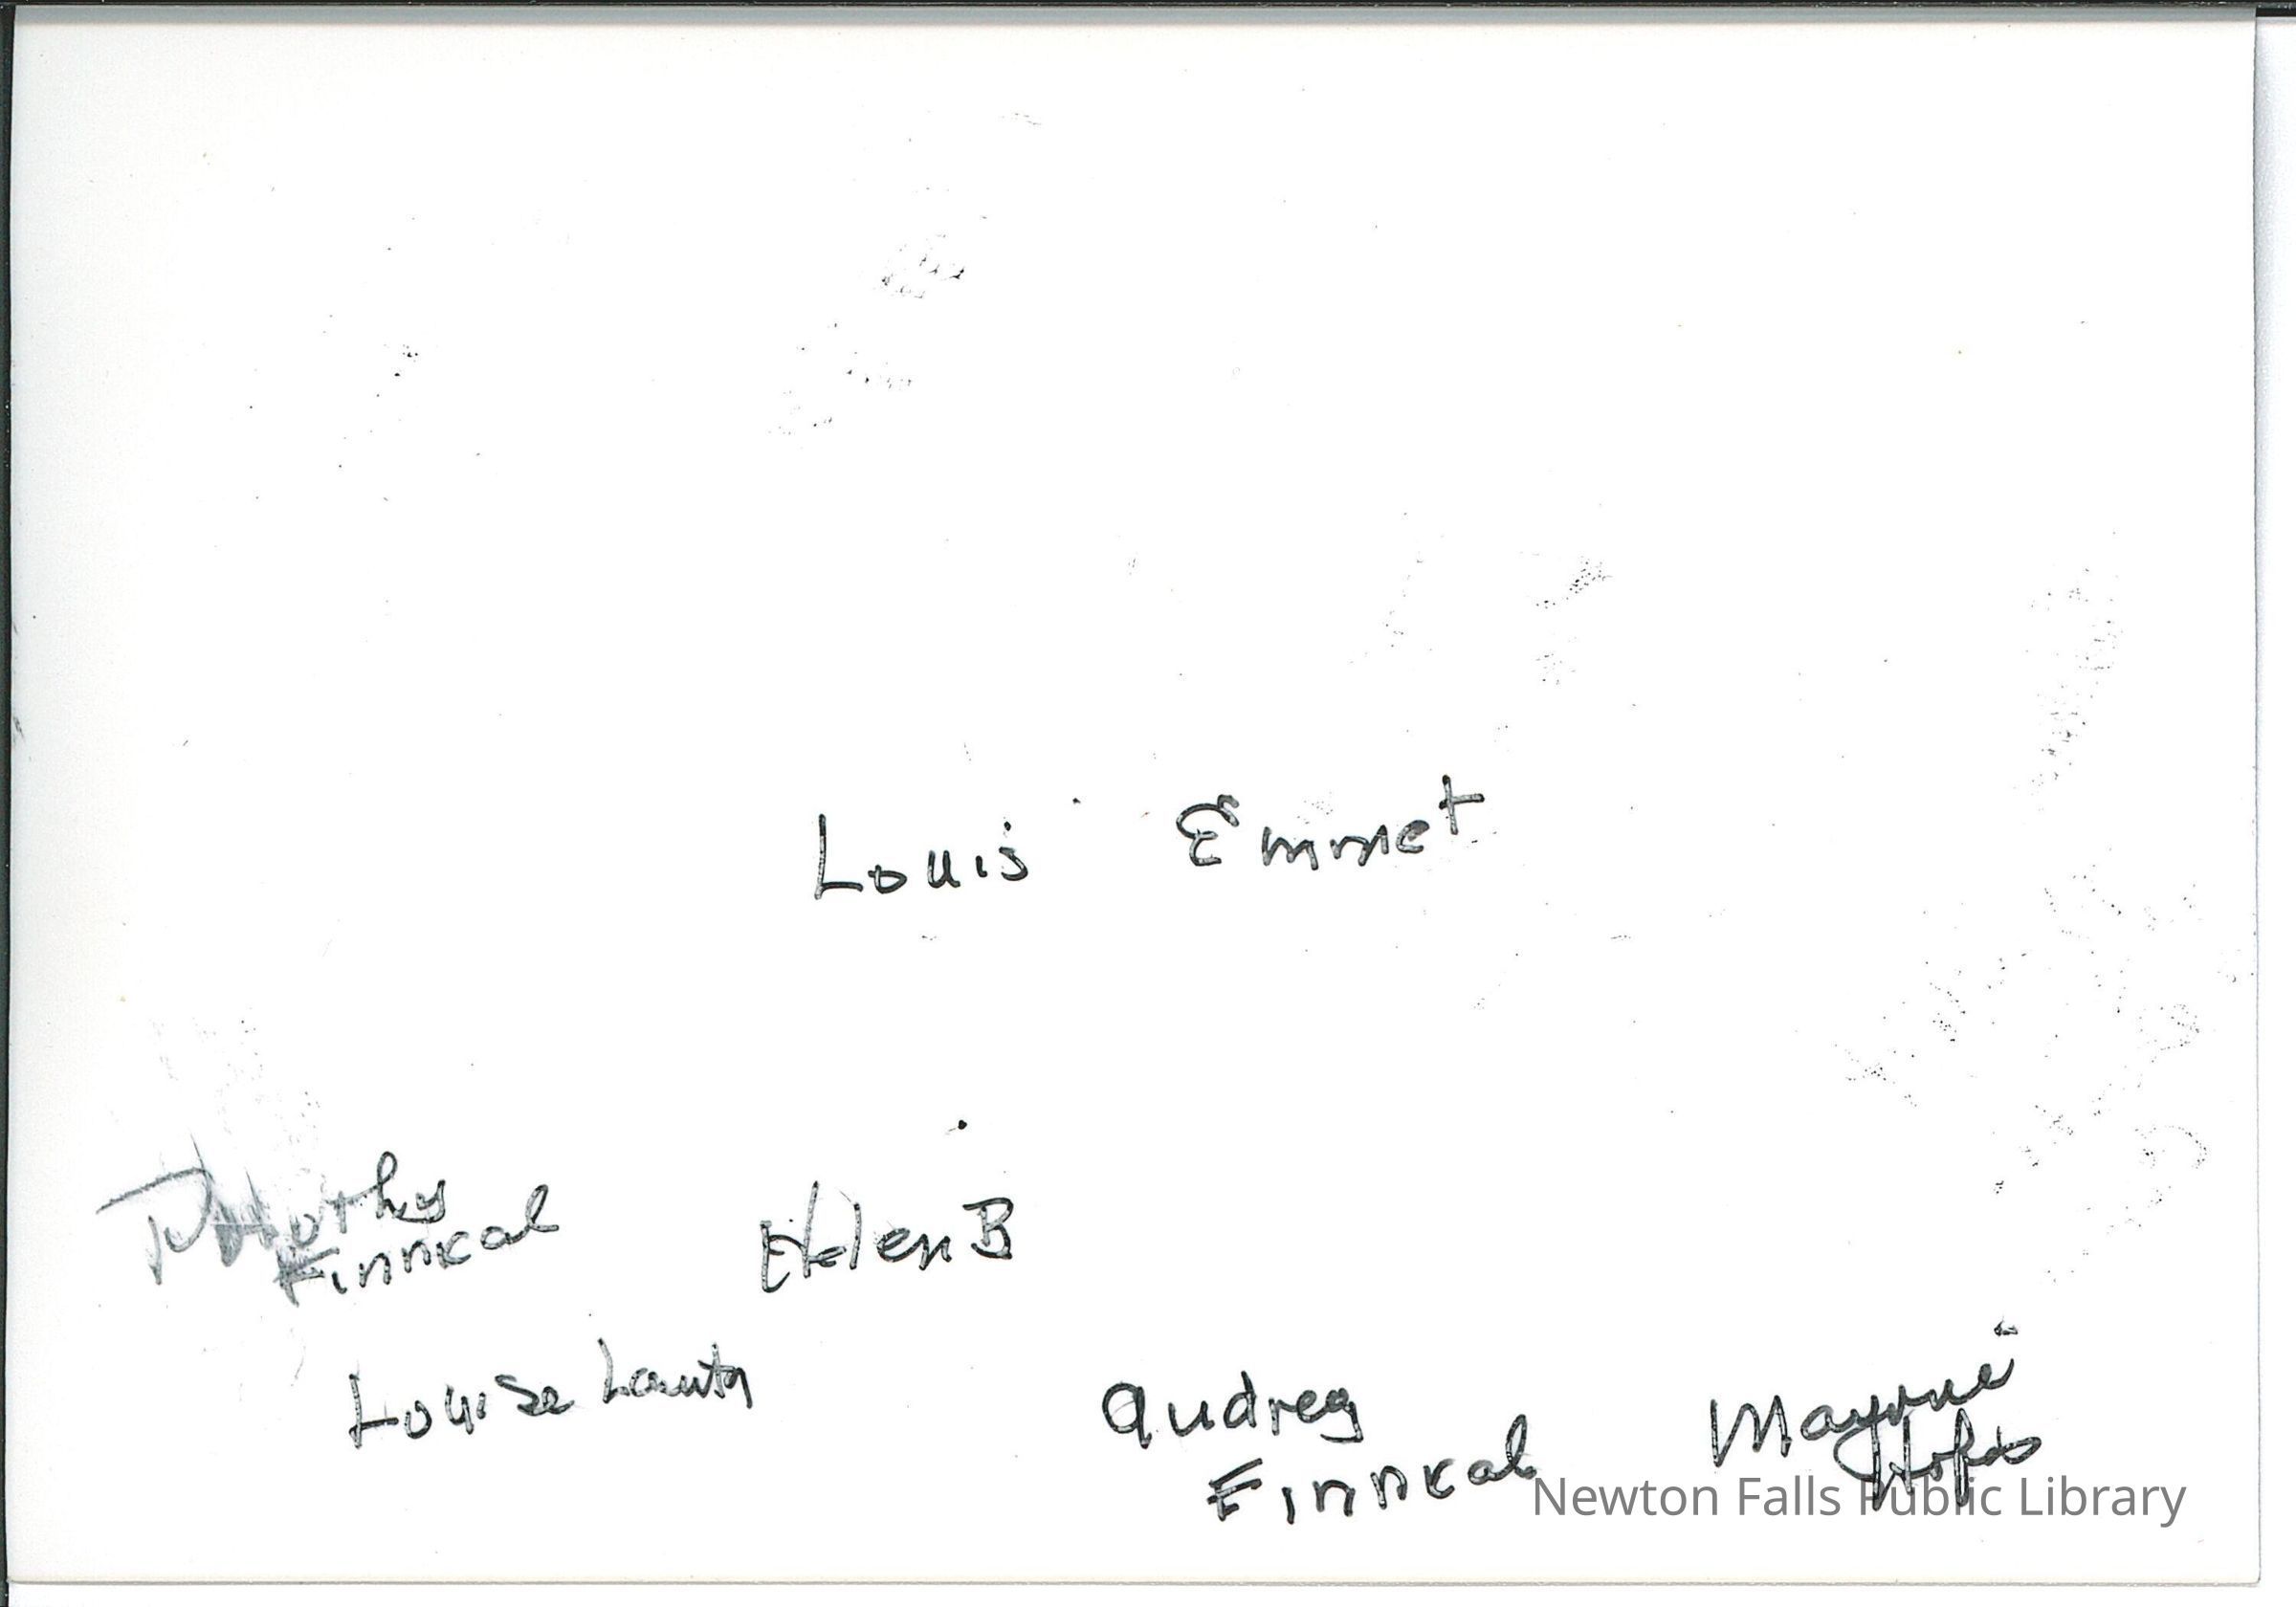 Louis Emmet
Dorothy
Finnical
Helen B
Louise
Audrey
Finnical
Mayme
Newton Falls Public Library